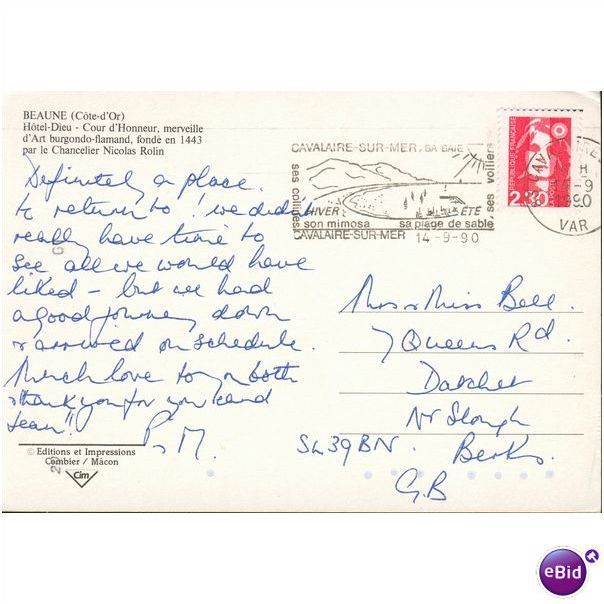 BEAUNE (Côte-d'Or)
Hôtel-Dieu - Cour d'Honneur, merveille
d'Art burgondo-flamand, fondé en 1443
par le Chancelier Nicolas Rolin
Definitely a place
to return to! we didn't
really have time to
see all we would have
liked - but we had
a good journey down
& arrived on schedule.
Much love to you both
& thank you for your card
Jean!!
P. M.
© Editions et Impressions
Combier / Mâcon
Cim
CAVALAIRE-SUR-MER, SA BAIE
ses collines
ses voiliers
HIVER
ÉTÉ
son mimosa
sa plage de sable
CAVALAIRE-SUR-MER
14-9-90
REPUBLIQUE FRANÇAISE
2,30
H
-9
1990
VAR
Mrs & Miss Bell.
7 Queens Rd.
Datchet
Nr Slough
SL39BN.
Berks.
G.B
eBid